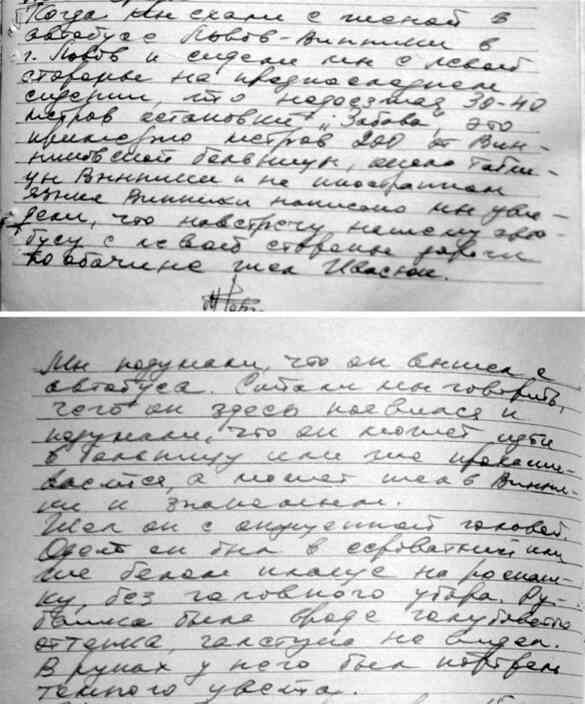 Когда мы ехали с женой в
автобусе Львов-Винники в
г. Львов и сидели мы с левой
стороны на предпоследнем
сидении, что недоезжая 30-40
метров остановки „Забава", это
примерно метров 200 от Вин-
никовской больницы, около табли-
цы Винники и на иностранном
языке Винники написано мы уви-
дели, что навстречу нашему авто-
бусу с левой стороны дороги
по обочине шел Ивасюк.
Мы подумали, что он вышел с
автобуса. Стали мы говорить,
чего он здесь появился и
подумали, что он может идти
в больницу или же
а может шел в Винни-
ки к знакомым.
Шел он с опущенной головой.
Одет он был в сероватый или
же белом плаще на роспаш-
ку, без головного убора. Ру-
башка была вроде голубоватого
оттенка, галстука не видел.
В руках у него был портфель
темного цвета.